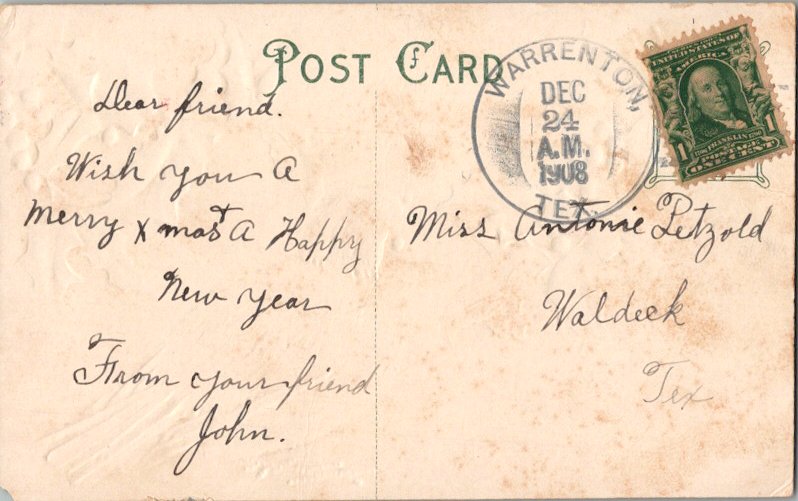 POST CARD
WARRENTON,
DEC
24
A.M.
1908
TEX.
UNITED STATES OF
AMERICA
1706 FRANKLIN 1790
1 1
POSTAGE
ONE CENT
Dear friend.
Wish you A
Merry Xmast A Happy
New year
From your friend
John.
Miss Antonie Petzold
Waldeck
Tex